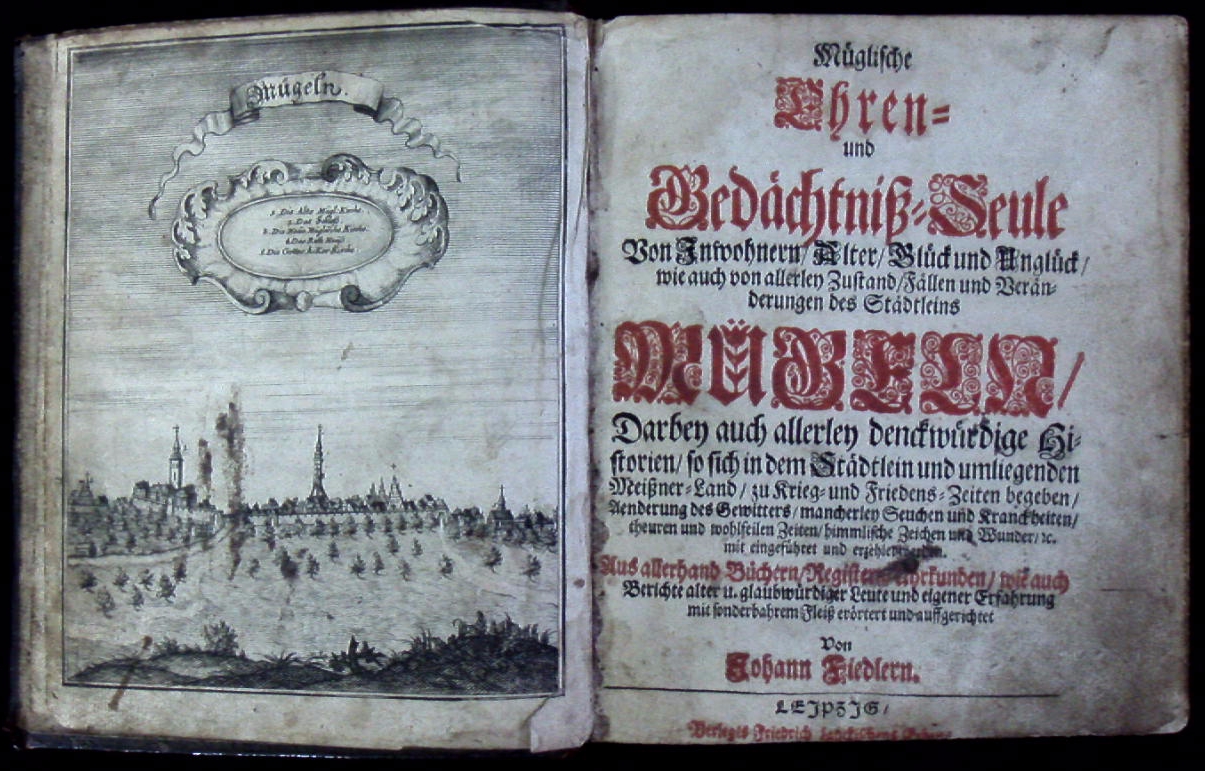 Mügeln.
1. Die Alte Mügl. Kirche.
2. Das Schloß
4. Das Rath Hauß
Müglische
Ehren-
und
Gedächtniß-Seule
Von Inwohnern/ Alter/ Glück und Unglück/
wie auch von allerley Zustand/ Fällen und Verän-
derungen des Städtleins
MÜGELN/
Darbey auch allerley denckwürdige Hi-
storien/ so sich in dem Städtlein und umliegenden
Meißner-Land/ zu Krieg- und Friedens-Zeiten begeben/
Aenderung des Gewitters/ mancherley Seuchen und Kranckheiten/
theuren und wohlfeilen Zeiten/ himmlische Zeichen und Wunder/ ꝛc.
mit eingeführet und erzehlet
Aus allerhand Büchern/ Registern wie auch
Berichte alter u. glaubwürdiger Leute und eigener Erfahrung
mit sonderbahrem Fleiß erörtert und auffgerichtet
Von
Johann Fiedlern.
LEJPZJG/
Verlegts Friedrich